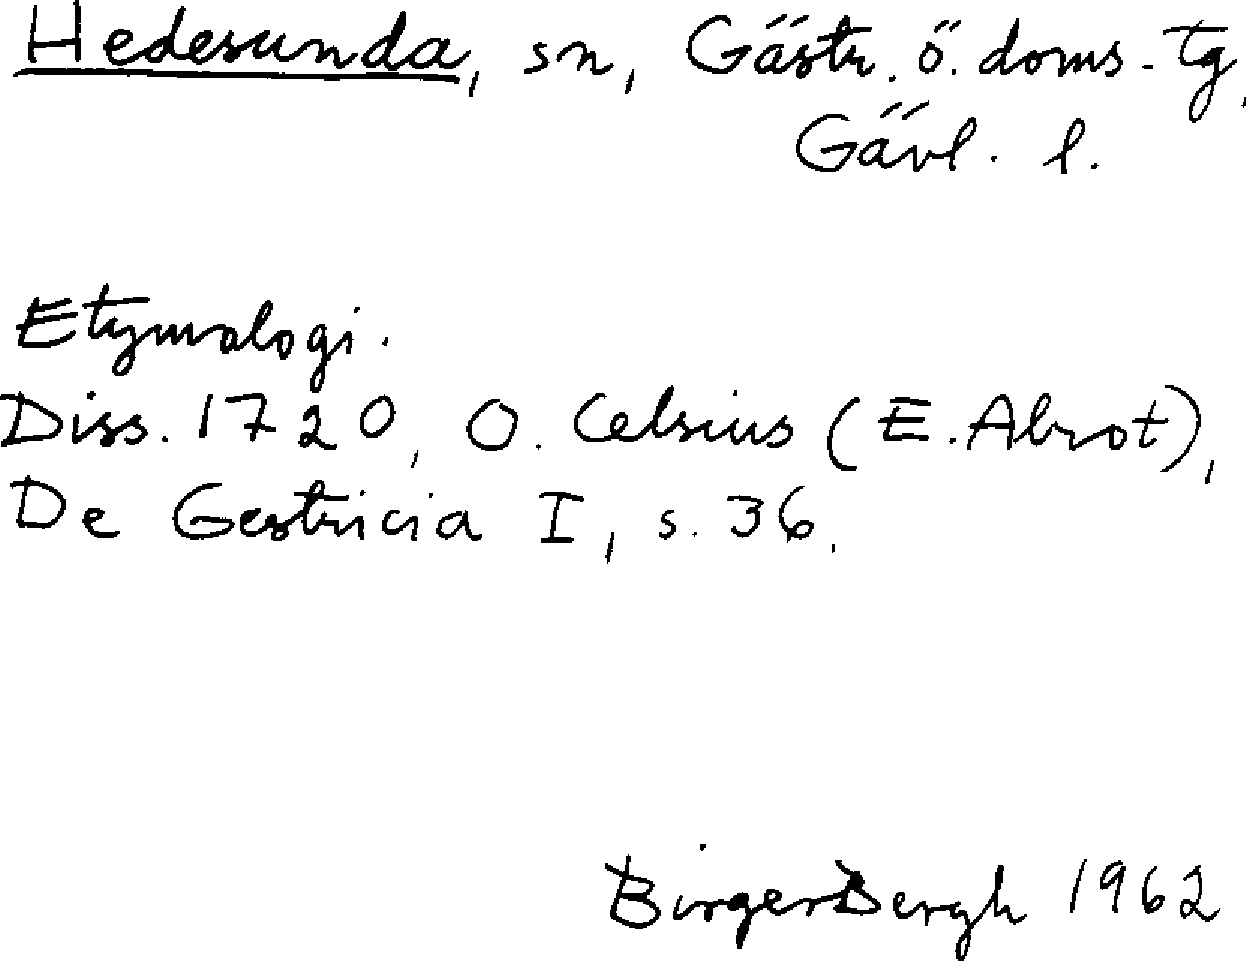 Hedesunda, sn, Gästr. ö. doms-tg,
Gävl. l.
Etymologi.
Diss. 1720, O. Celsius (E. Abrot),
De Gestricia I, s. 36.
Birger Bergh 1962